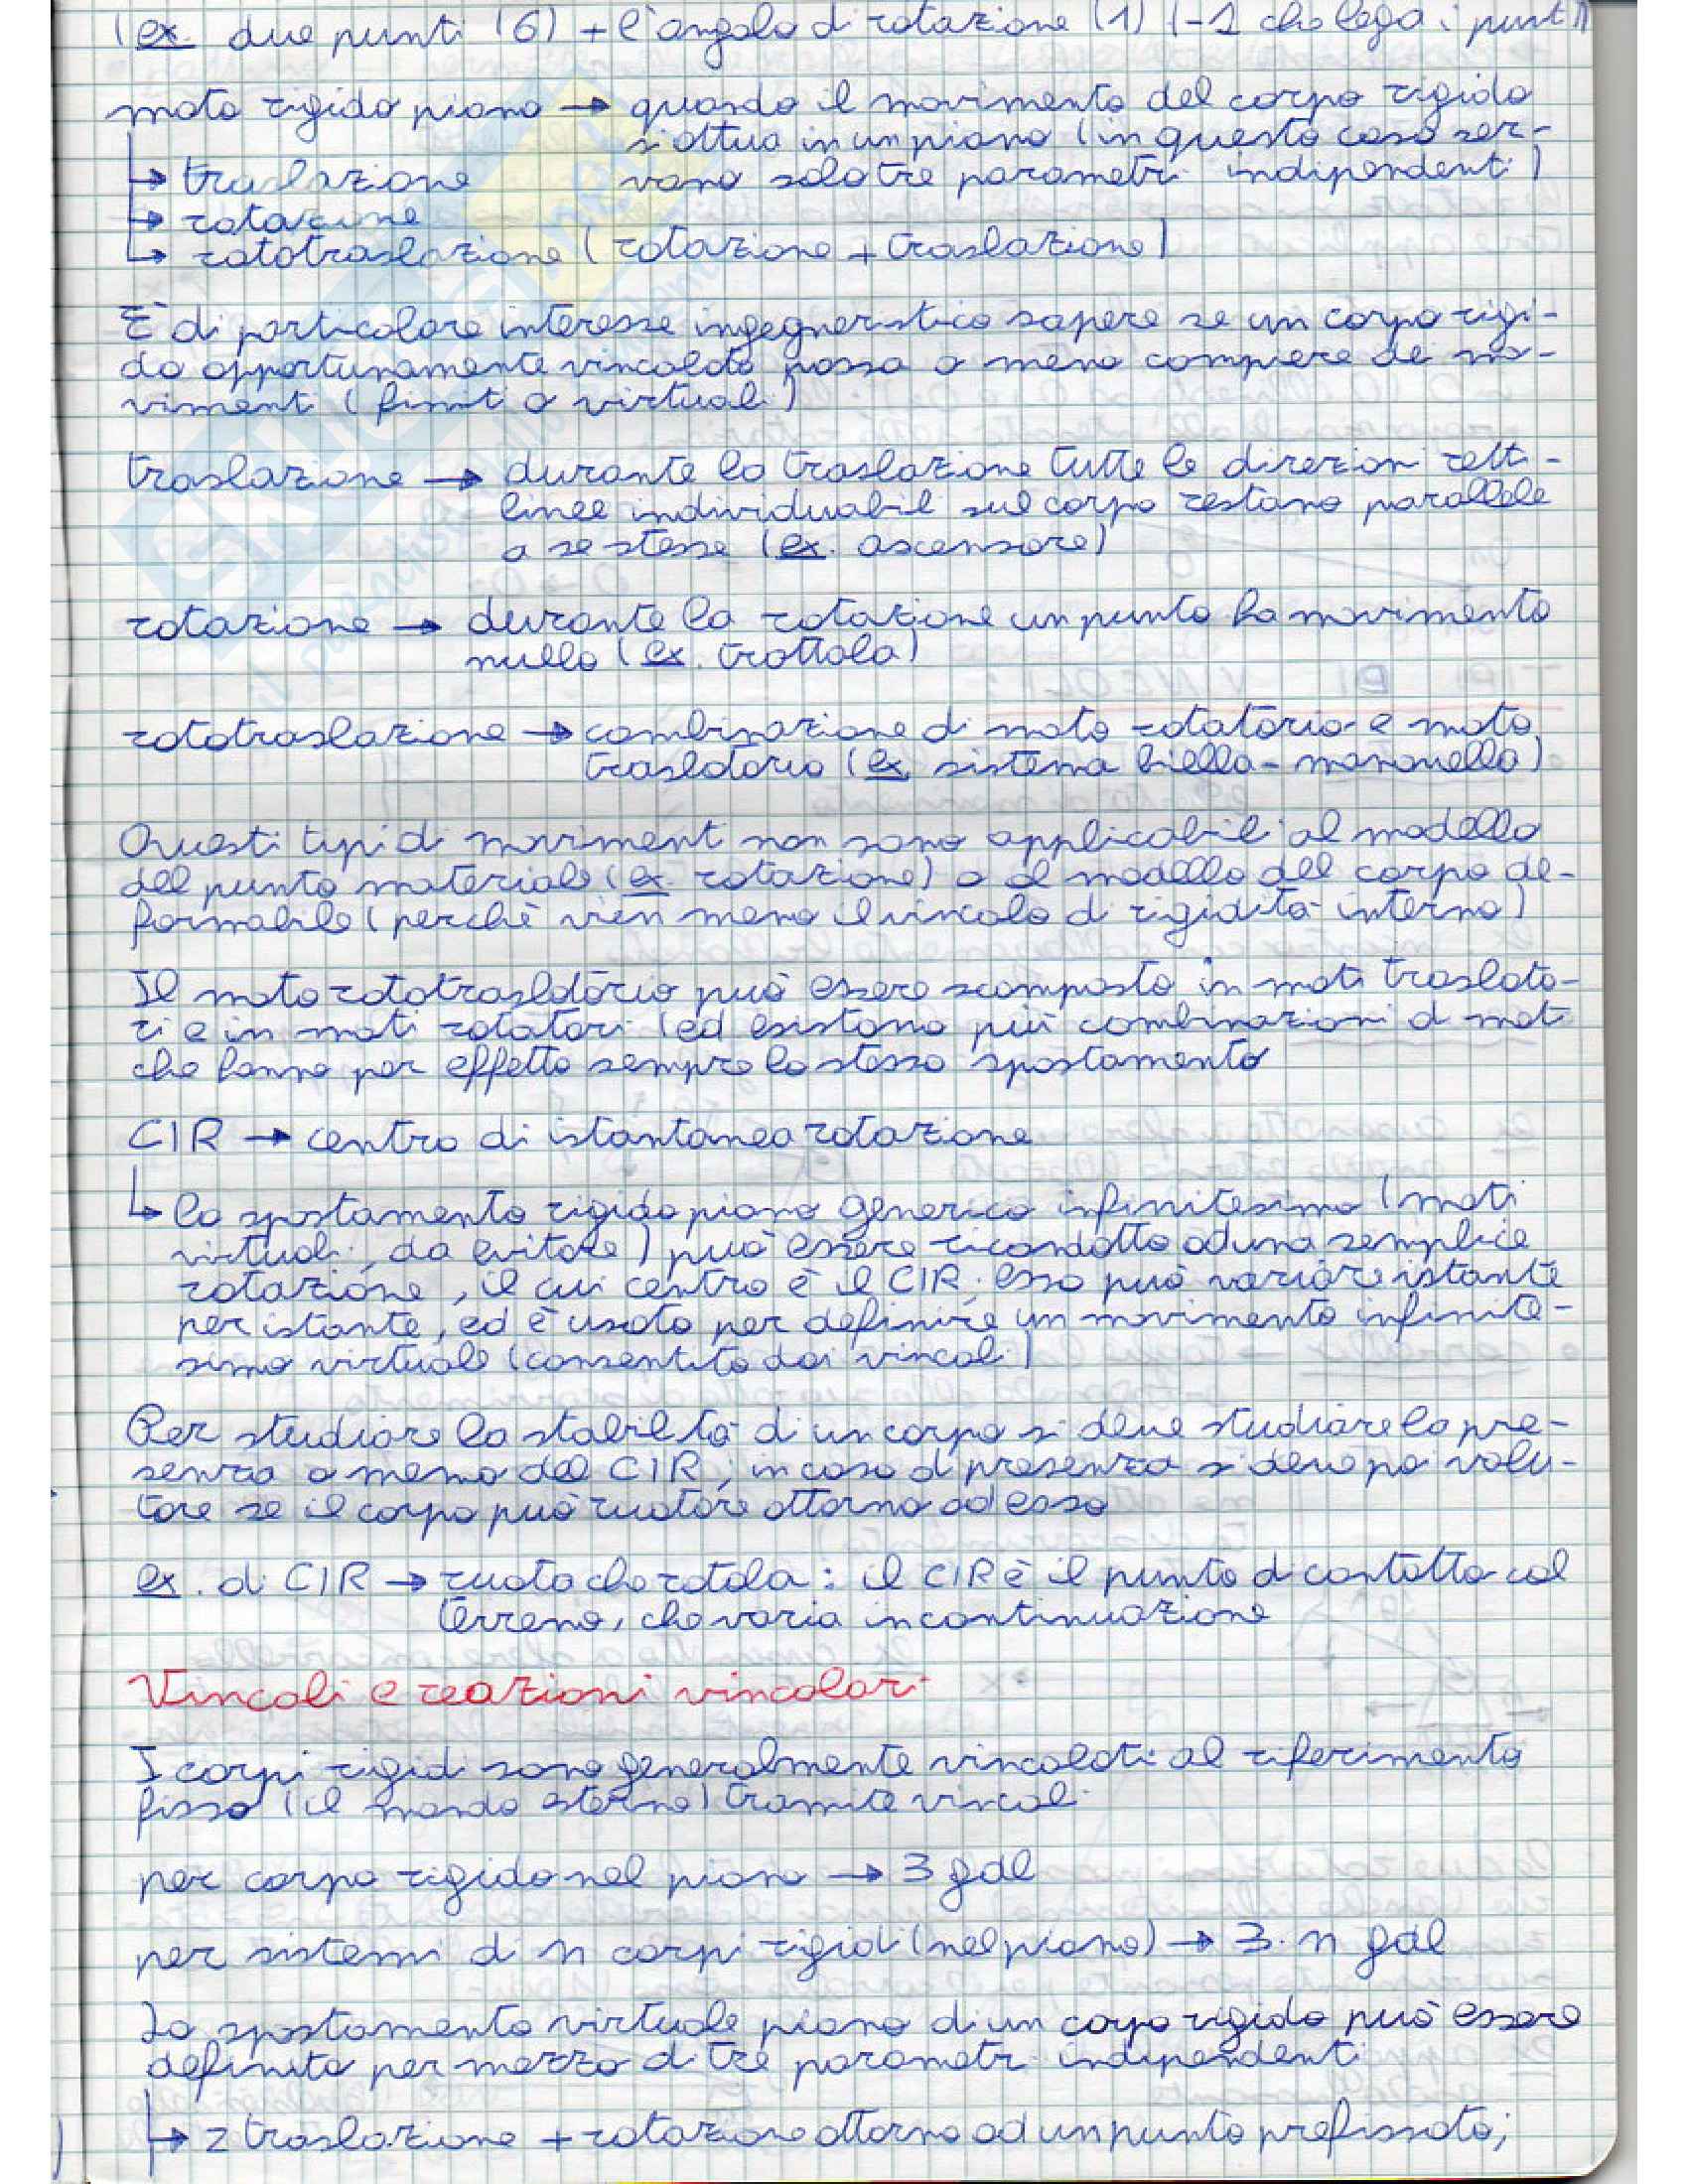 (ex. due punti (6) + l'angolo di rotazione (1) (-1 che lega i punti)
moto rigido piano → quando il movimento del corpo rigido
si attua in un piano (in questo caso ser-
↳ traslazione vono solo tre parametri indipendenti)
↳ rotazione
↳ rototraslazione (rotazione + traslazione)
È di particolare interesse ingegneristico sapere se un corpo rigi-
do opportunamente vincolato possa o meno compiere dei mo-
vimenti (finiti o virtuali)
traslazione → durante la traslazione tutte le direzioni retti-
linee individuabili sul corpo restano parallele
a se stesse (ex. ascensore)
rotazione → durante la rotazione un punto ha movimento
nullo (ex. trottola)
rototraslazione → combinazione di moto rotatorio e moto
traslatorio (ex. sistema biella-manovella)
Questi tipi di movimenti non sono applicabili al modello
del punto materiale (ex. rotazione) o al modello del corpo de-
formabile (perchè vien meno il vincolo di rigidità interno)
Il moto rototraslatorio può essere scomposto in moti traslato-
ri e in moti rotatori (ed esistono più combinazioni di moti
che hanno per effetto sempre lo stesso spostamento
CIR → centro di istantanea rotazione
↳ lo spostamento rigido piano generico infinitesimo (moti
virtuali, da evitare) può essere ricondotto ad una semplice
rotazione, il cui centro è il CIR; esso può variare istante
per istante, ed è usato per definire un movimento infinite-
simo virtuale (consentito dai vincoli)
Per studiare la stabilità di un corpo si deve studiare la pre-
senza o meno del CIR; in caso di presenza si deve poi valu-
tare se il corpo può ruotare attorno ad esso
ex. di CIR → ruota che rotola: il CIR è il punto di contatto col
terreno, che varia in continuazione
Vincoli e reazioni vincolari
I corpi rigidi sono generalmente vincolati al riferimento
fisso (il mondo esterno) tramite vincoli
per corpo rigido nel piano → 3 gdl
per sistemi di n corpi rigidi (nel piano) → 3·n gdl
Lo spostamento virtuale piano di un corpo rigido può essere
definito per mezzo di tre parametri indipendenti
↳ 2 traslazione + rotazione attorno ad un punto prefissato;